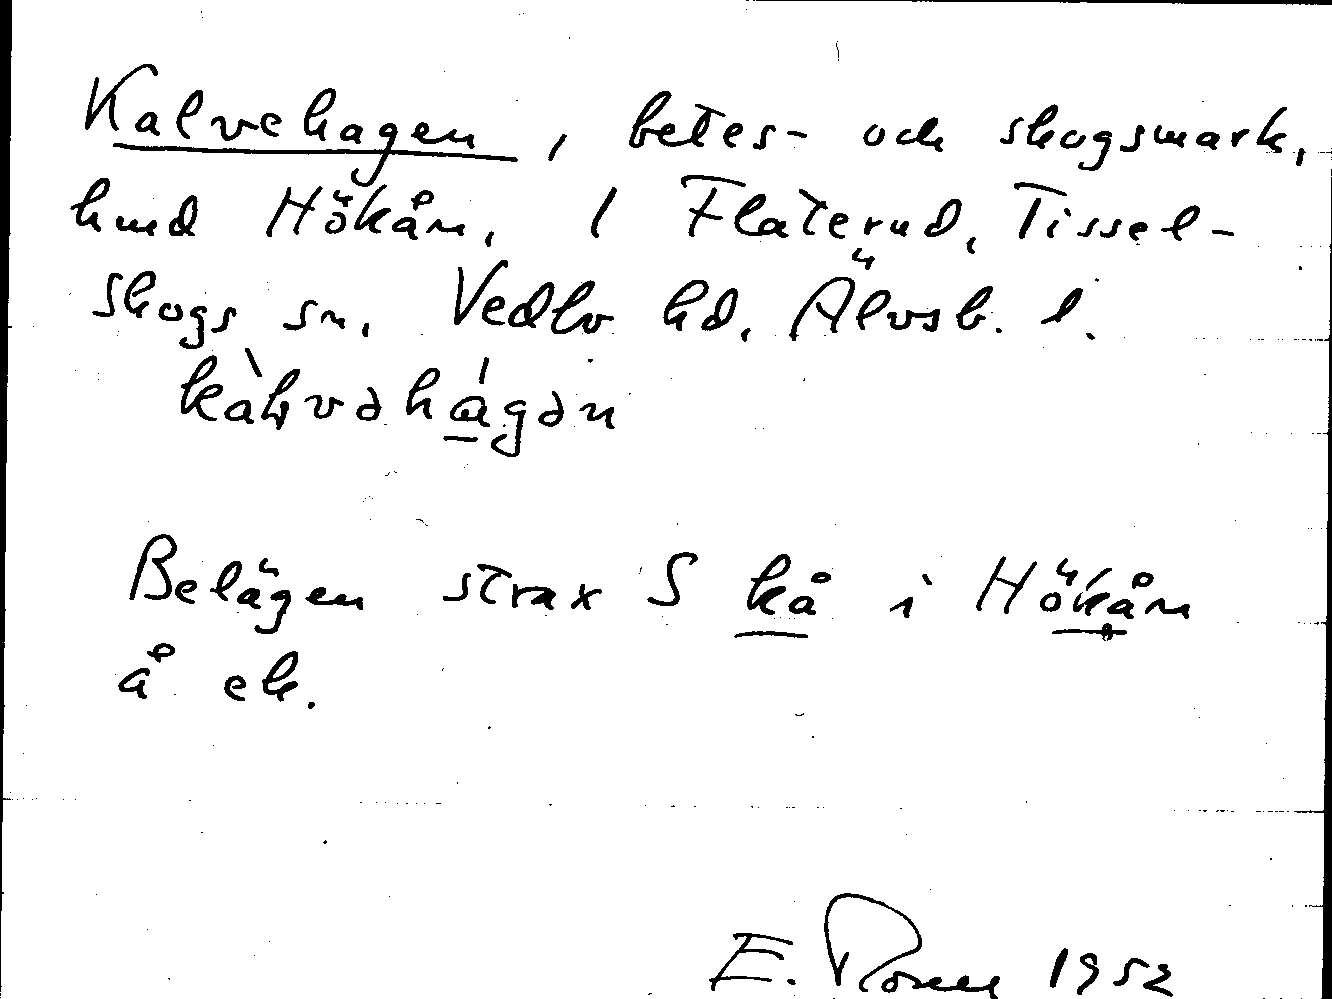 Kalvehagen, betes- och skogsmark,
hmd Hökån, 1 Flaterud, Tissel-
skogs sn, Vedbo hd, Älvsb. l.
Belägen strax S kå i Hökån
å ek.
E. 1952